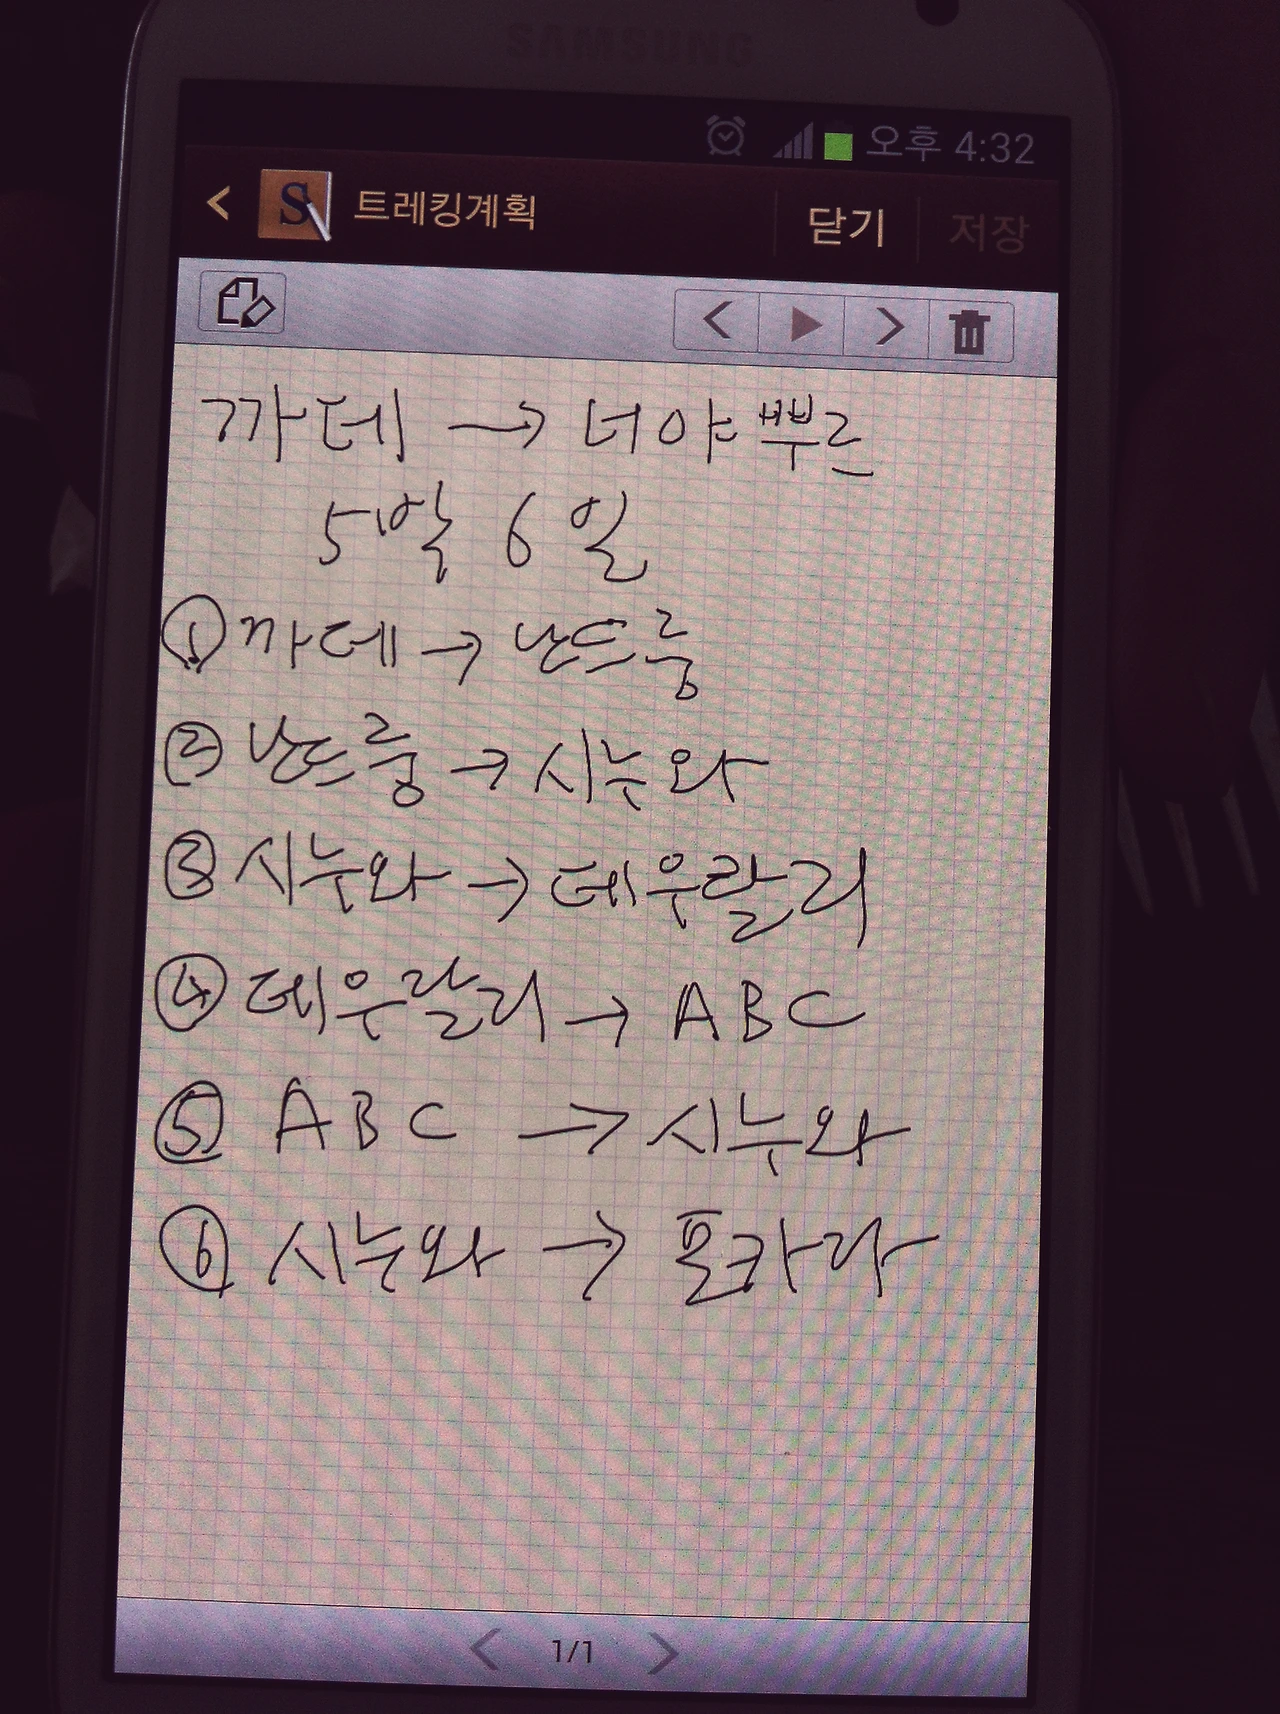 SAMSUNG
오후 4:32
S 트레킹계획 닫기 저장
까데 → 너야뿌르
5박 6일
① 까데 → 난드룽
② 난드룽 → 시누와
③ 시누와 → 데우랄리
④ 데우랄리 → ABC
⑤ ABC → 시누와
⑥ 시누와 → 포카라
1/1